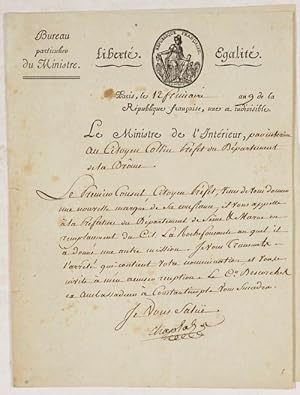 Bureau
particulier
du Ministre.
Liberté. Egalité.
RÉPUBLIQUE FRANÇAISE
Paris, le 12 frimaire an 9 de la
République française, une et indivisible.
Le Ministre de l'Intérieur, par interim
au Citoyen Collin Préfet du Département
de la Drôme.
Le premier Consul, Citoyen Préfet, vient de vous donner
une nouvelle marque de sa confiance, il vous appelle
à la Préfecture du Département de Seine & Marne en
remplacement du Cit. La Rochefoucauld au quel il
a donné une autre mission. Je vous transmets
l'arrêté qui contient votre nomination et vous
invite à m'en accuser reception. Le Cn. Descorches
ex Ambassadeur à Constantinople vous succede.
Je vous Salue
Chaptal